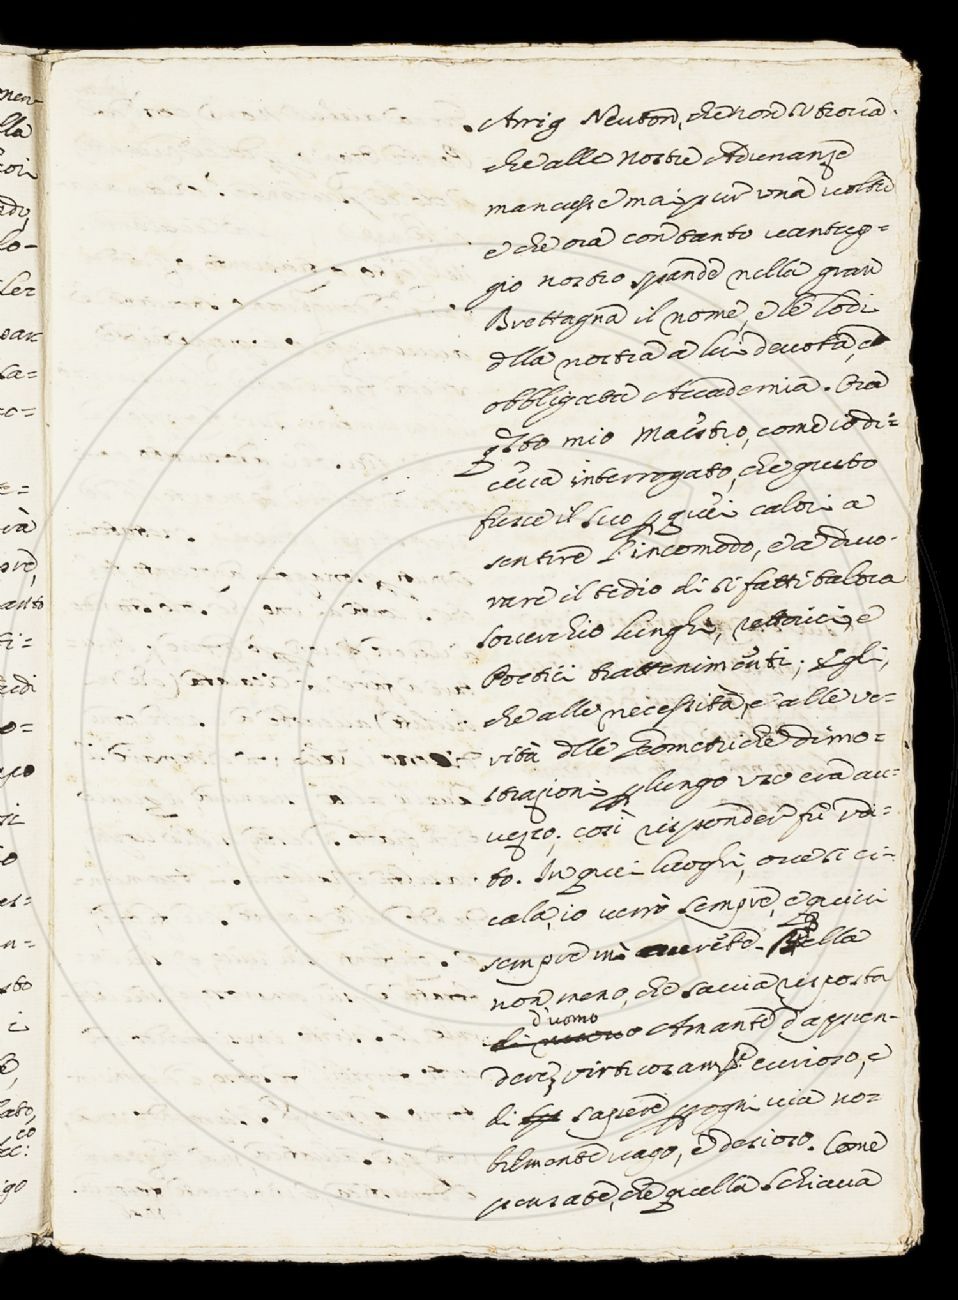 Arrig Neuton, che non si trova
che alle nostre Adunanze
mancasse mai pur una volta
e che ora con tanto vantag=
gio nostro spande nella gran
Brettagna il nome, e le lodi
dlla nostra a lui devota, ed
obbligata Accademia. Ora
qsto mio Maestro, come io di=
ceva interrogato, che gusto
fusse il suo p quei caldi a
sentire l'incomodo, e a divo-
rare il tedio di sì fatti talora
soverchio lunghi, rettorici, e
Poetici trattenimenti; Egli,
che alle necessità, e alle ve-
rità dlle Geometriche dimo=
strazioni p lungo uso era au=
vezzo, così risponder fù udi=
to. In quei luoghi, ove si ci-
cala, io verrò sempre, e quivi
sempre mi avrete. Bella
non meno, che savia risposta
d'uomo
Amante d'appren-
dere, virtuosam.te curioso, e
di sapere p ogni via no=
bilmente vago, e desioso. Come
pensate, che quella schiava